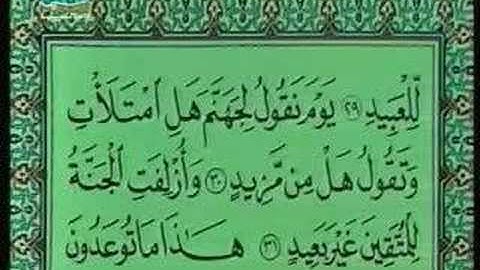 لِّلْعَبِيدِ ٢٩ يَوْمَ نَقُولُ لِجَهَنَّمَ هَلِ ٱمْتَلَأْتِ
وَتَقُولُ هَلْ مِن مَّزِيدٍ ٣٠ وَأُزْلِفَتِ ٱلْجَنَّةُ
لِلْمُتَّقِينَ غَيْرَ بَعِيدٍ ٣١ هَٰذَا مَا تُوعَدُونَ